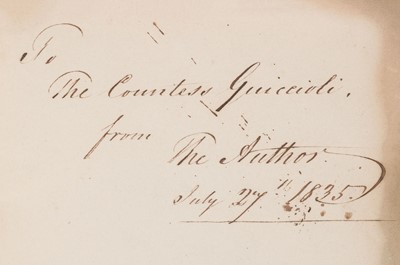 To
The Countess Guiccioli.
from
The Author
July 27th 1835